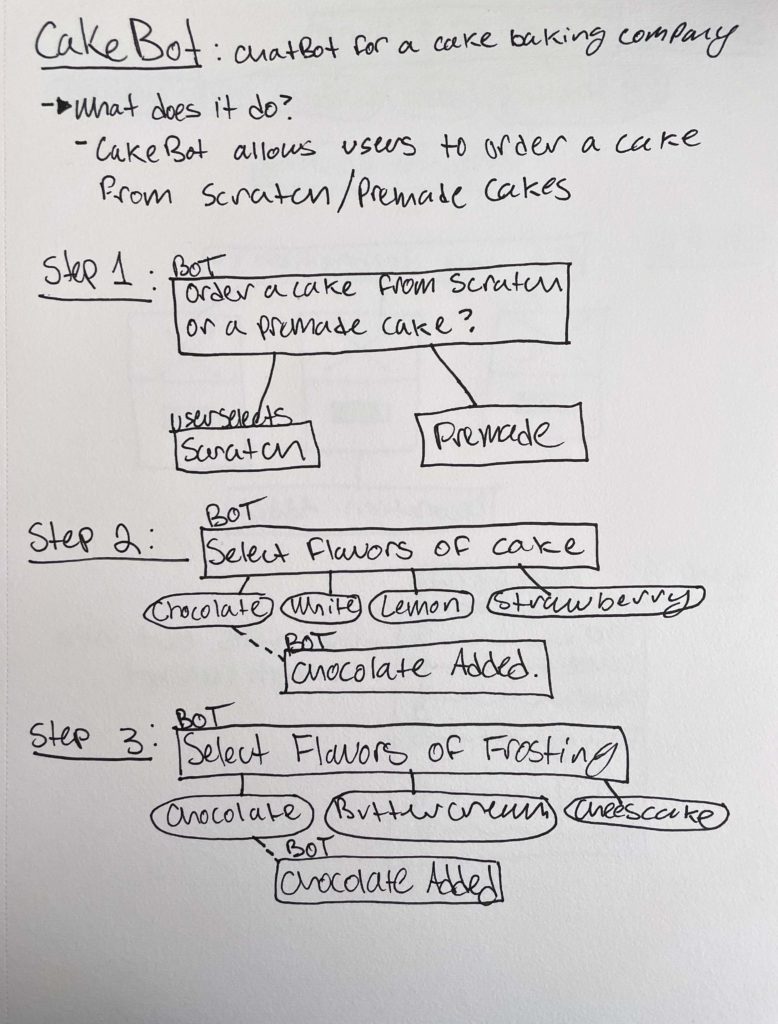 CakeBot: chatBot for a cake baking company
What does it do?
- CakeBot allows users to order a cake
from scratch/Premade cakes
Step 1:
BOT
Order a cake from scratch
or a premade cake?
user selects
Scratch
Premade
Step 2:
BOT
Select Flavors of cake
Chocolate White Lemon Strawberry
BOT
Chocolate Added.
Step 3:
BOT
Select Flavors of Frosting
Chocolate Buttercream Cheescake
BOT
Chocolate Added